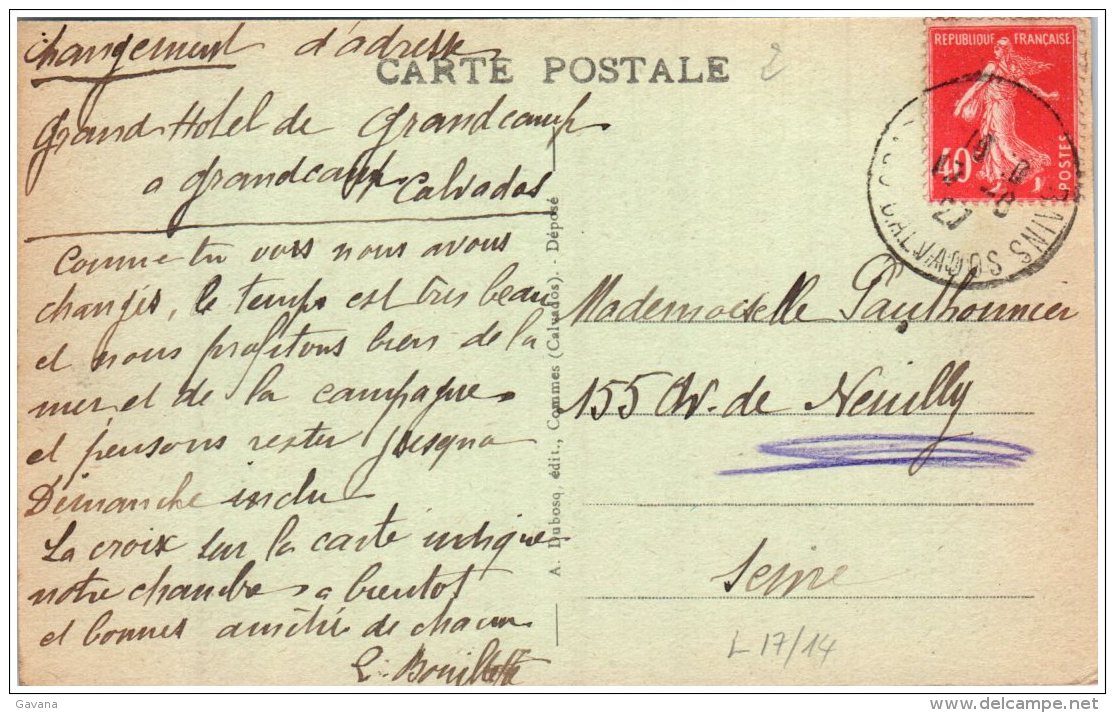 changement d'adresse
CARTE POSTALE
2
Grand Hotel de Grandcamp
a Grandcamp Calvados
Comme tu vois nous avous
changés, le temps est très beau
et nous profitons bien de la
mer et de la campagne
et pensons rester jusqua
Dimanche inclu
La croix sur la carte indique
notre chambre a bientot
et bonnes amitié de chacun
A. Dubosq, édit., Commes (Calvados). - Déposé
REPUBLIQUE FRANÇAISE
40
POSTES
BAINS
CALVADOS
Mademoiselle Paulhonnier
155 Av. de Neuilly
Seine
L 17/14
Gavana
delcampe.net